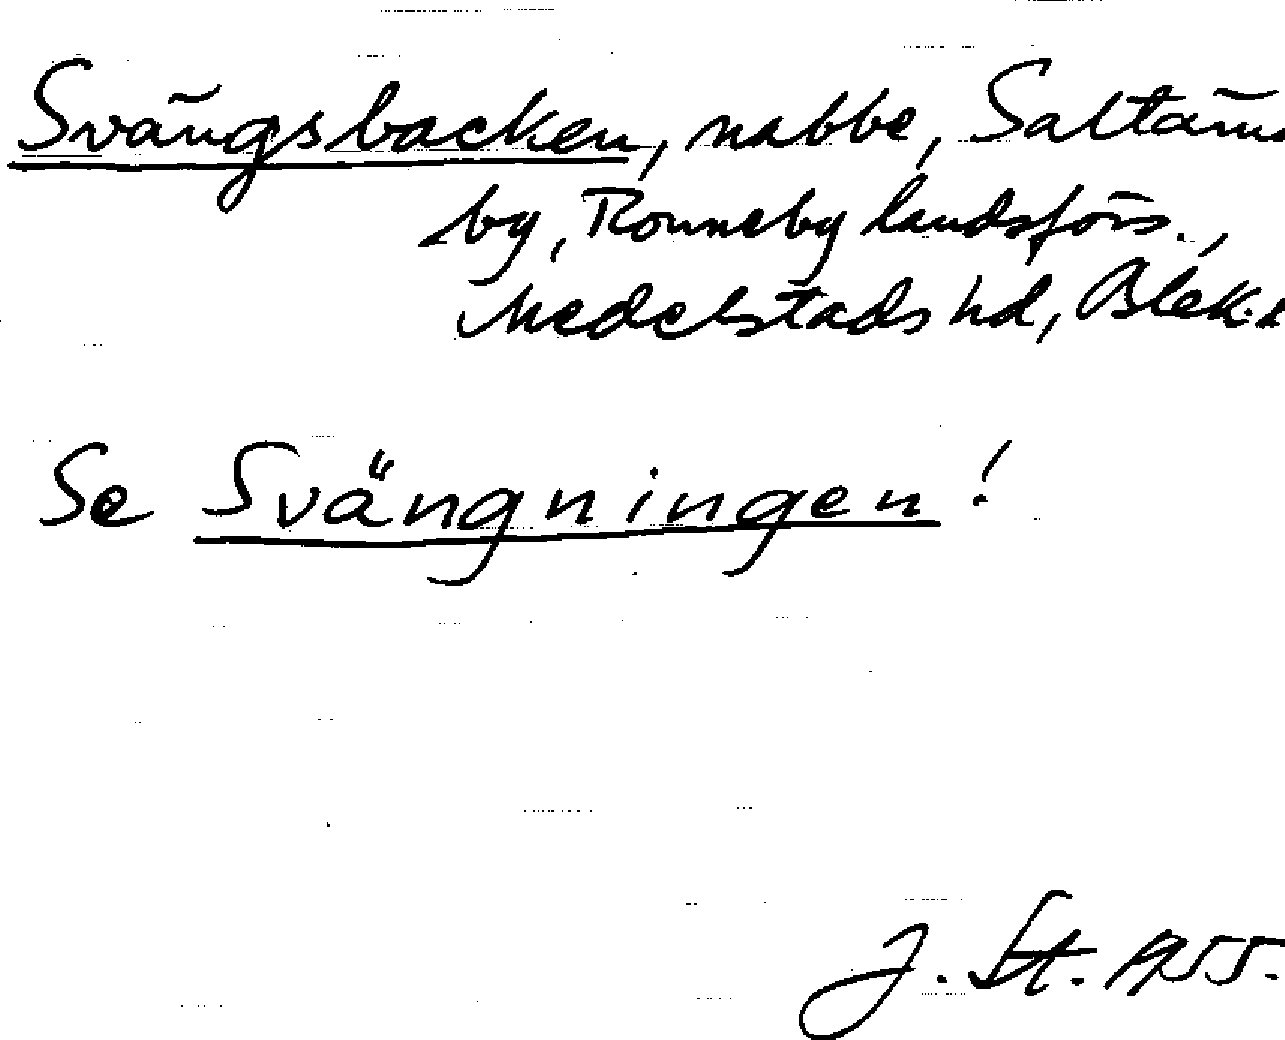 Svängsbacken, nabbe, Saltärns
by, Ronneby landsförs.,
Medelstads hd, Blek.
Se Svängningen!
J. St. 1955.